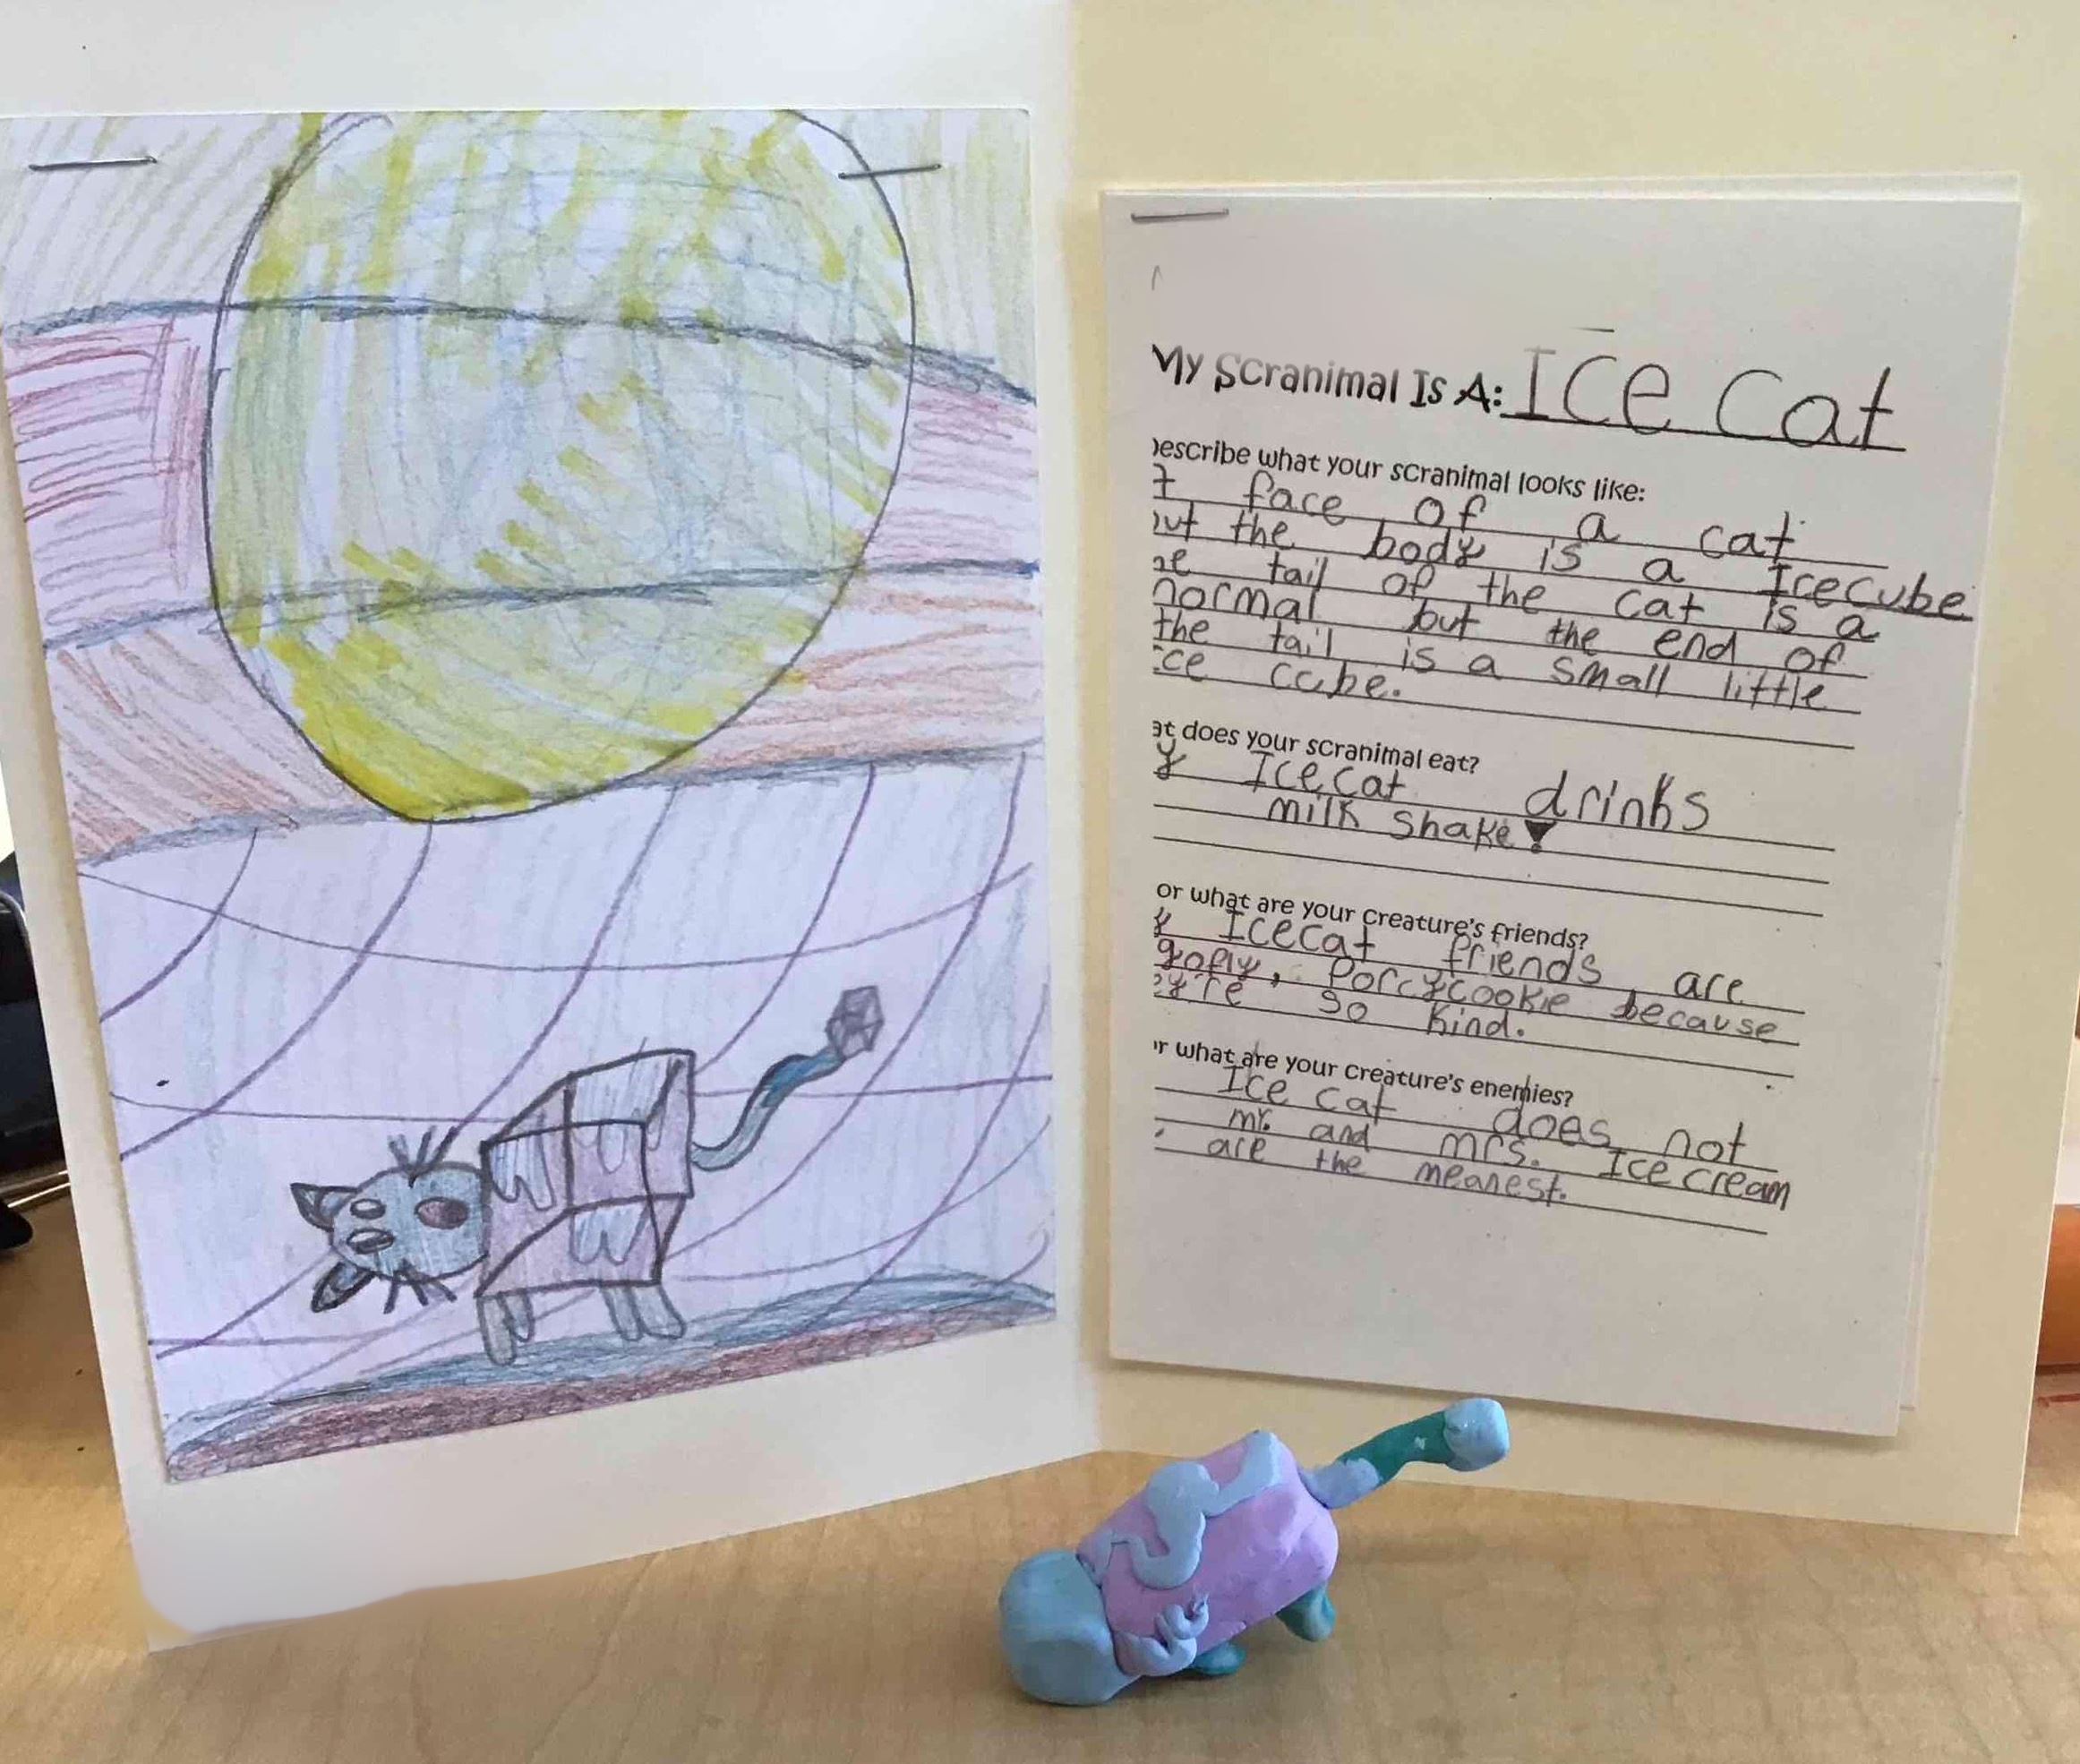 My Scranimal Is A: Ice Cat
escribe what your scranimal looks like:
face of a cat
ut the body is a Icecube
tail of the cat is a
normal but the end of
the tail is a small little
ce cube.
at does your scranimal eat?
y Icecat drinks
milk shake!
or what are your creature's friends?
y Icecat friends are
Porcycookie because
ey're so kind.
r what are your creature's enemies?
Ice cat does not
mr. and mrs. Ice cream
are the meanest.